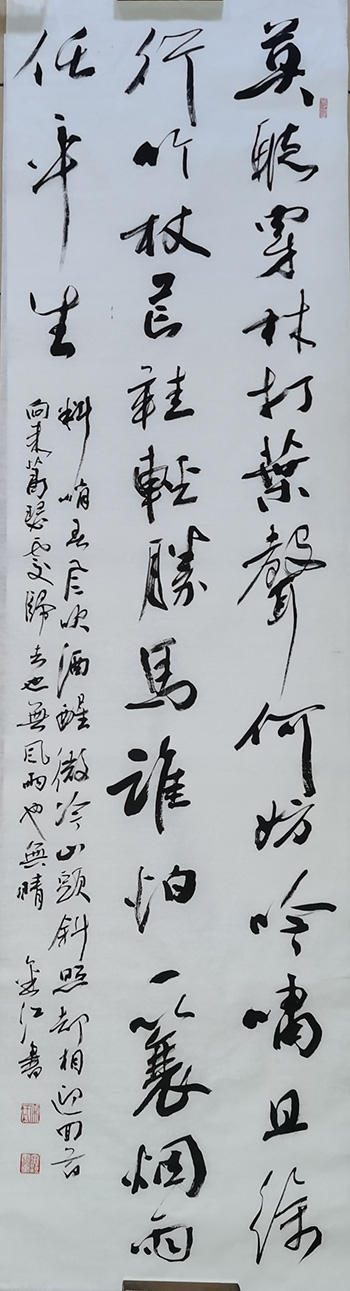 莫聽穿林打葉聲何妨吟嘯且徐
行竹杖芒鞋輕勝馬誰怕一蓑烟雨
任平生
料峭春風吹酒醒微冷山頭斜照却相迎回首
向來蕭瑟處歸去也無風雨也無晴
江書